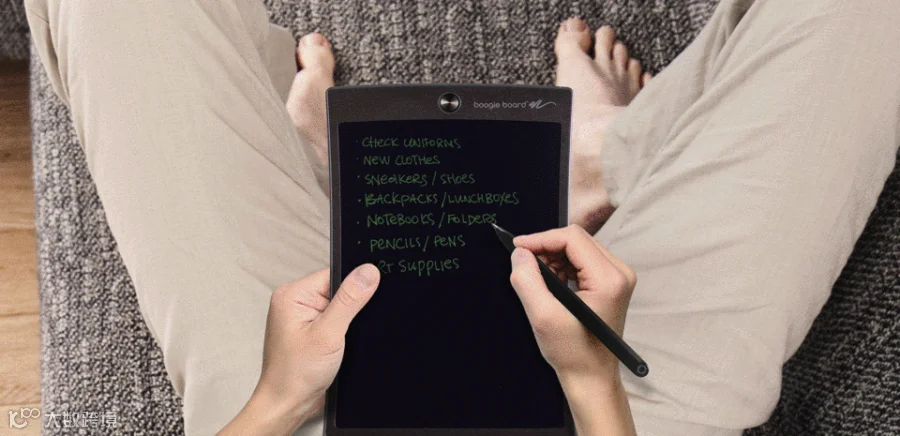 boogie board
· CHECK UNIFORMS
· NEW CLOTHES
· SNEAKERS / SHOES
· BACKPACKS / LUNCHBOXES
· NOTEBOOKS / FOLDERS
· PENCILS / PENS
RT SUPPLIES
大数跨境